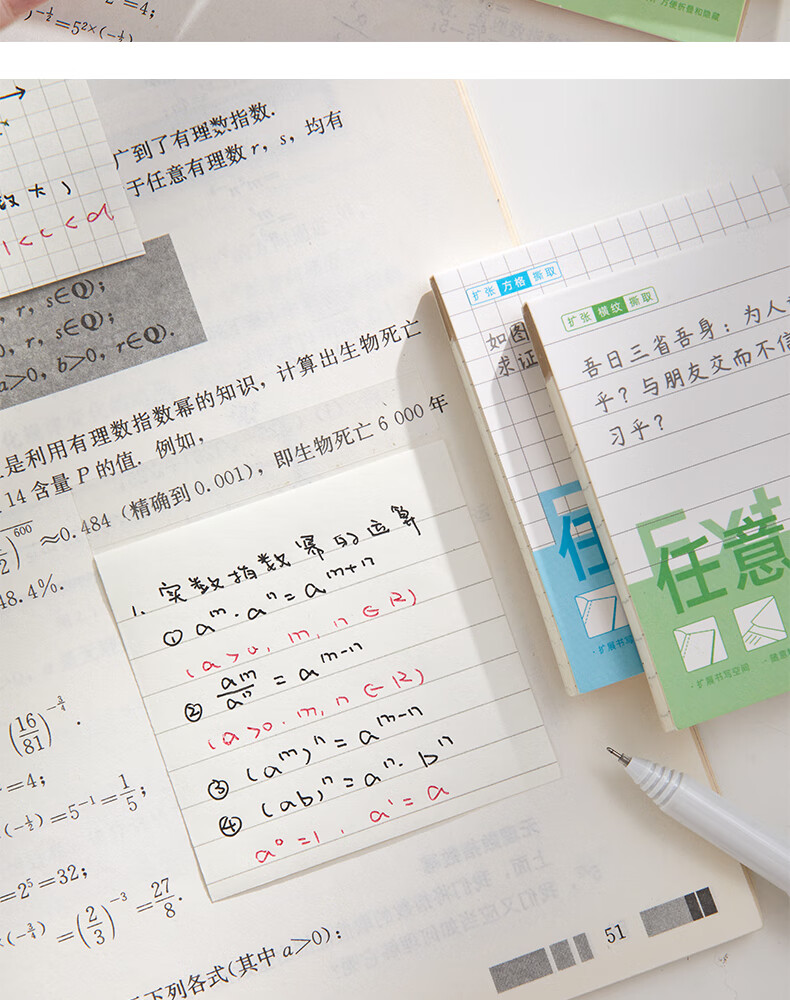 =4;
=5^2×(-1/2)
方便折叠和隐藏
广到了有理数指数.
于任意有理数 r, s, 均有
数大)
1<c<d
, r, s∈Q);
0, r, s∈Q);
a>0, b>0, r∈Q).
是利用有理数指数幂的知识, 计算出生物死亡
14 含量 P 的值. 例如,
≈0.484 (精确到 0.001), 即生物死亡 6 000 年
48.4%.
1. 实数指数幂的运算
① a^m · a^n = a^(m+n)
(a>0, m, n ∈ R)
② a^m/a^n = a^(m-n)
(a>0. m, n ∈ R)
③ (a^m)^n = a^(m-n)
④ (ab)^n = a^n · b^n
a^0=1, a^1=a
(16/81)^(-3/4).
=4;
(-1/2)=5^(-1)=1/5;
=2^5=32;
×(-3/4)=(2/3)^(-3)=27/8.
下列各式(其中 a>0):
51
扩张 方格 撕取
如图
求证
任
·扩展书写
扩张 横纹 撕取
吾日三省吾身: 为人
乎? 与朋友交而不信
习乎?
Ext
任意
·扩展书写空间
·随意